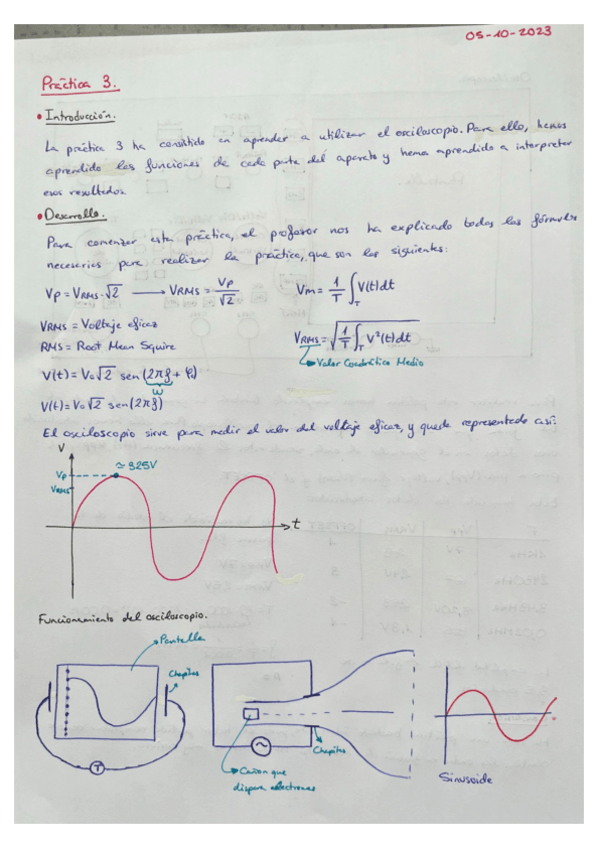 05-10-2023
Práctica 3.
• Introducción.
La práctica 3 ha consistido en aprender a utilizar el osciloscopio. Para ello, hemos
aprendido las funciones de cada parte del aparato y hemos aprendido a interpretar
esos resultados.
• Desarrollo.
Para comenzar esta práctica, el profesor nos ha explicando todas las fórmulas
necesarias para realizar la práctica, que son las siguientes:
Vp = VRMS · √2 ⟶ VRMS = Vp/√2 Vm = 1/T ∫T V(t)dt
VRMS = Voltaje eficaz
RMS = Root Mean Squire
VRMS = √(1/T ∫T V²(t)dt)
Valor Cuadrático Medio
V(t) = V0 √2 sen (2πf + φ)
ω
V(t) = V0 √2 sen (2πf)
El osciloscopio sirve para medir el valor del voltaje eficaz, y queda representado así:
V
Vp
≃ 325V
VRMS
t
Funcionamiento del osciloscopio.
Pantalla
Chapitas
T
Chapitas
~
Cañon que
dispara electrones
Sinusoide